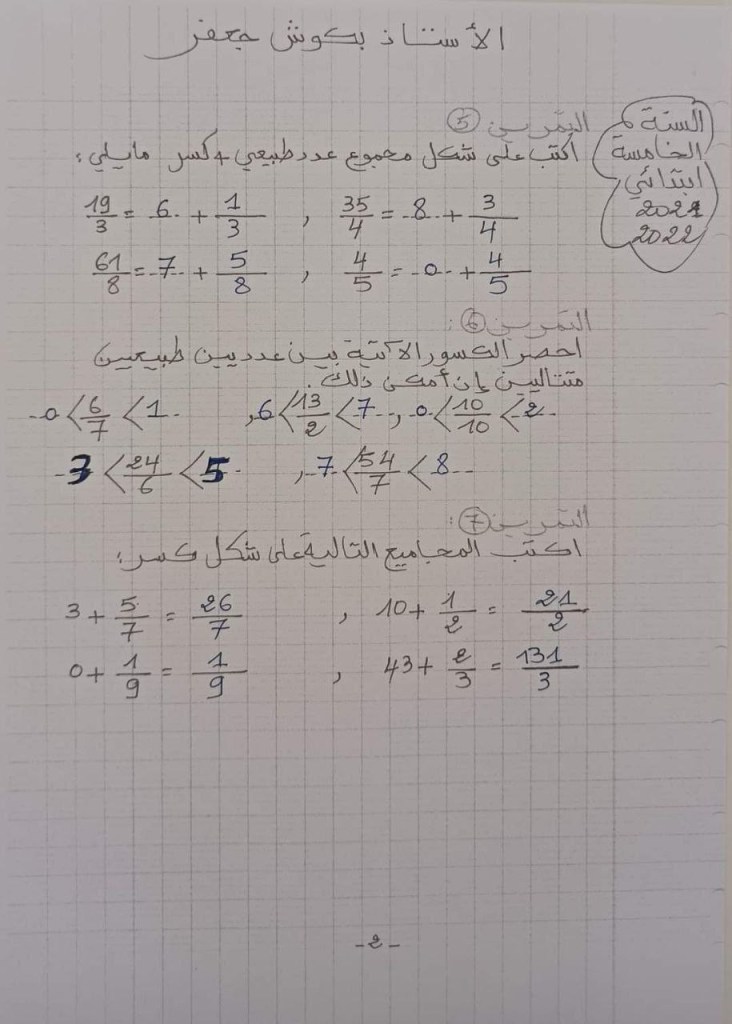 الأستاذ بكوش جعفر
السنة
الخامسة
ابتدائي
2021
2022
التمرين 5
اكتب على شكل مجموع عدد طبيعي + كسر مايلي:
19/3 = 6 + 1/3 , 35/4 = 8 + 3/4
61/8 = 7 + 5/8 , 4/5 = 0 + 4/5
التمرين 6:
احصر الكسور الآتية بين عدديين طبيعيين
متتاليين إن أمكن ذلك.
0 < 6/7 < 1 , 6 < 13/2 < 7 , 0 < 10/10 < 2
3 < 24/6 < 5 , 7 < 54/7 < 8
التمرين 7:
اكتب المجاميع التالية على شكل كسر:
3 + 5/7 = 26/7 , 10 + 1/2 = 21/2
0 + 1/9 = 1/9 , 43 + 2/3 = 131/3
-2-